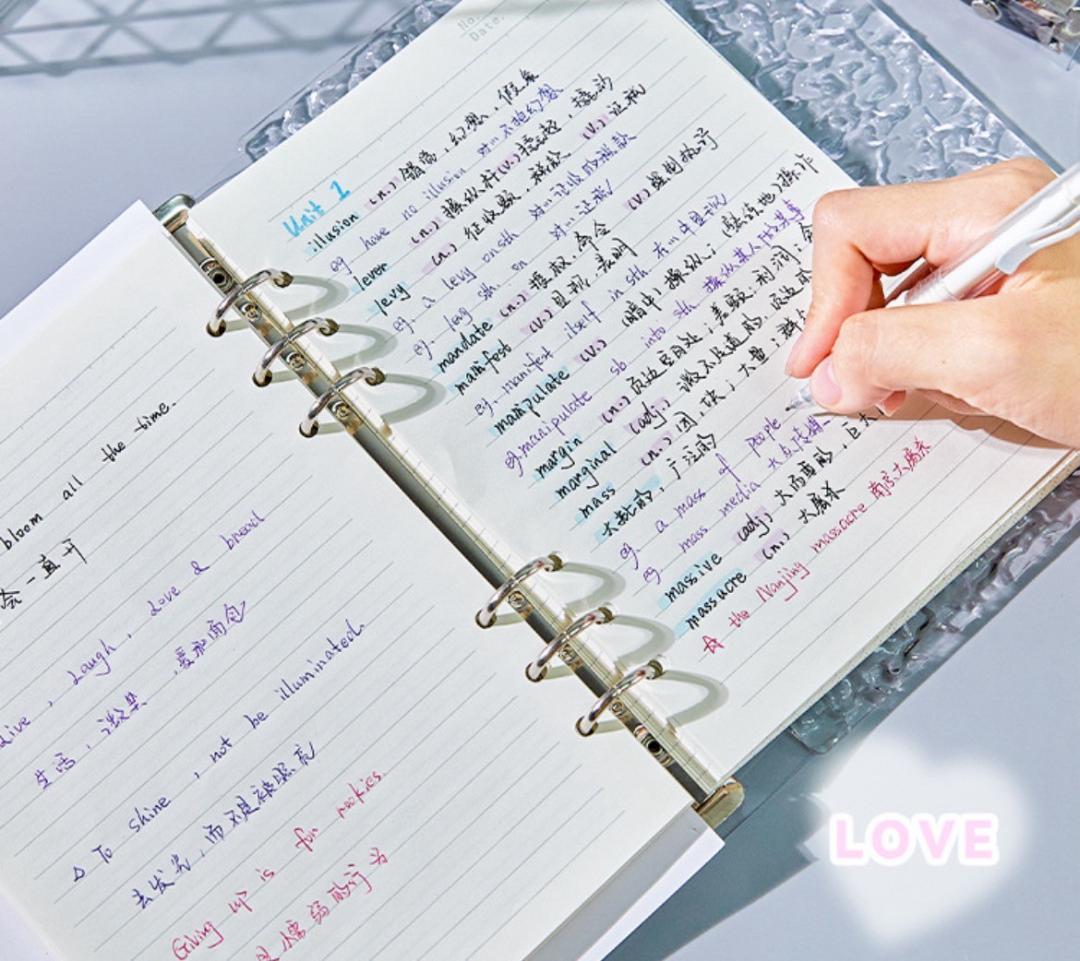 bloom all the time.
会一直开
Live, Laugh, Love & bread
生活，微笑，爱和面包
△ To shine, not be illuminated.
去发光，而不是被照亮
Giving up is for rookies.
懦弱的行为
No.
Date.
Unit 1
illusion (n.) 错觉，幻想，假象
eg have no illusion 对…不抱幻想
lever (n.) 操纵杆 (v.) 撬起，撬动
levy (n.) 征收额，税款 (v.) 征税
eg. a levy on sth 对…征收的税款
eg. levy sth. on 对…征税
mandate (n.) 授权，命令 (v.) 强制执行
manifest (v.) 显现，表明
eg. manifest itself in sth. 在…中显现
manipulate (v.) (暗中) 操纵；(熟练地) 操作
eg. manipulate sb into sth 操纵某人做某事
margin (n.) 页边空白处；差额；利润；
marginal (adj.) 微不足道的，页边
mass (n.) 团，块；大量；
大批的，广泛的
eg. a mass of people
eg. mass media 大众传媒
massive (adj.) 大而重的，巨大
massacre (n.) 大屠杀
☆ the Nanjing massacre 南京大屠杀
LOVE